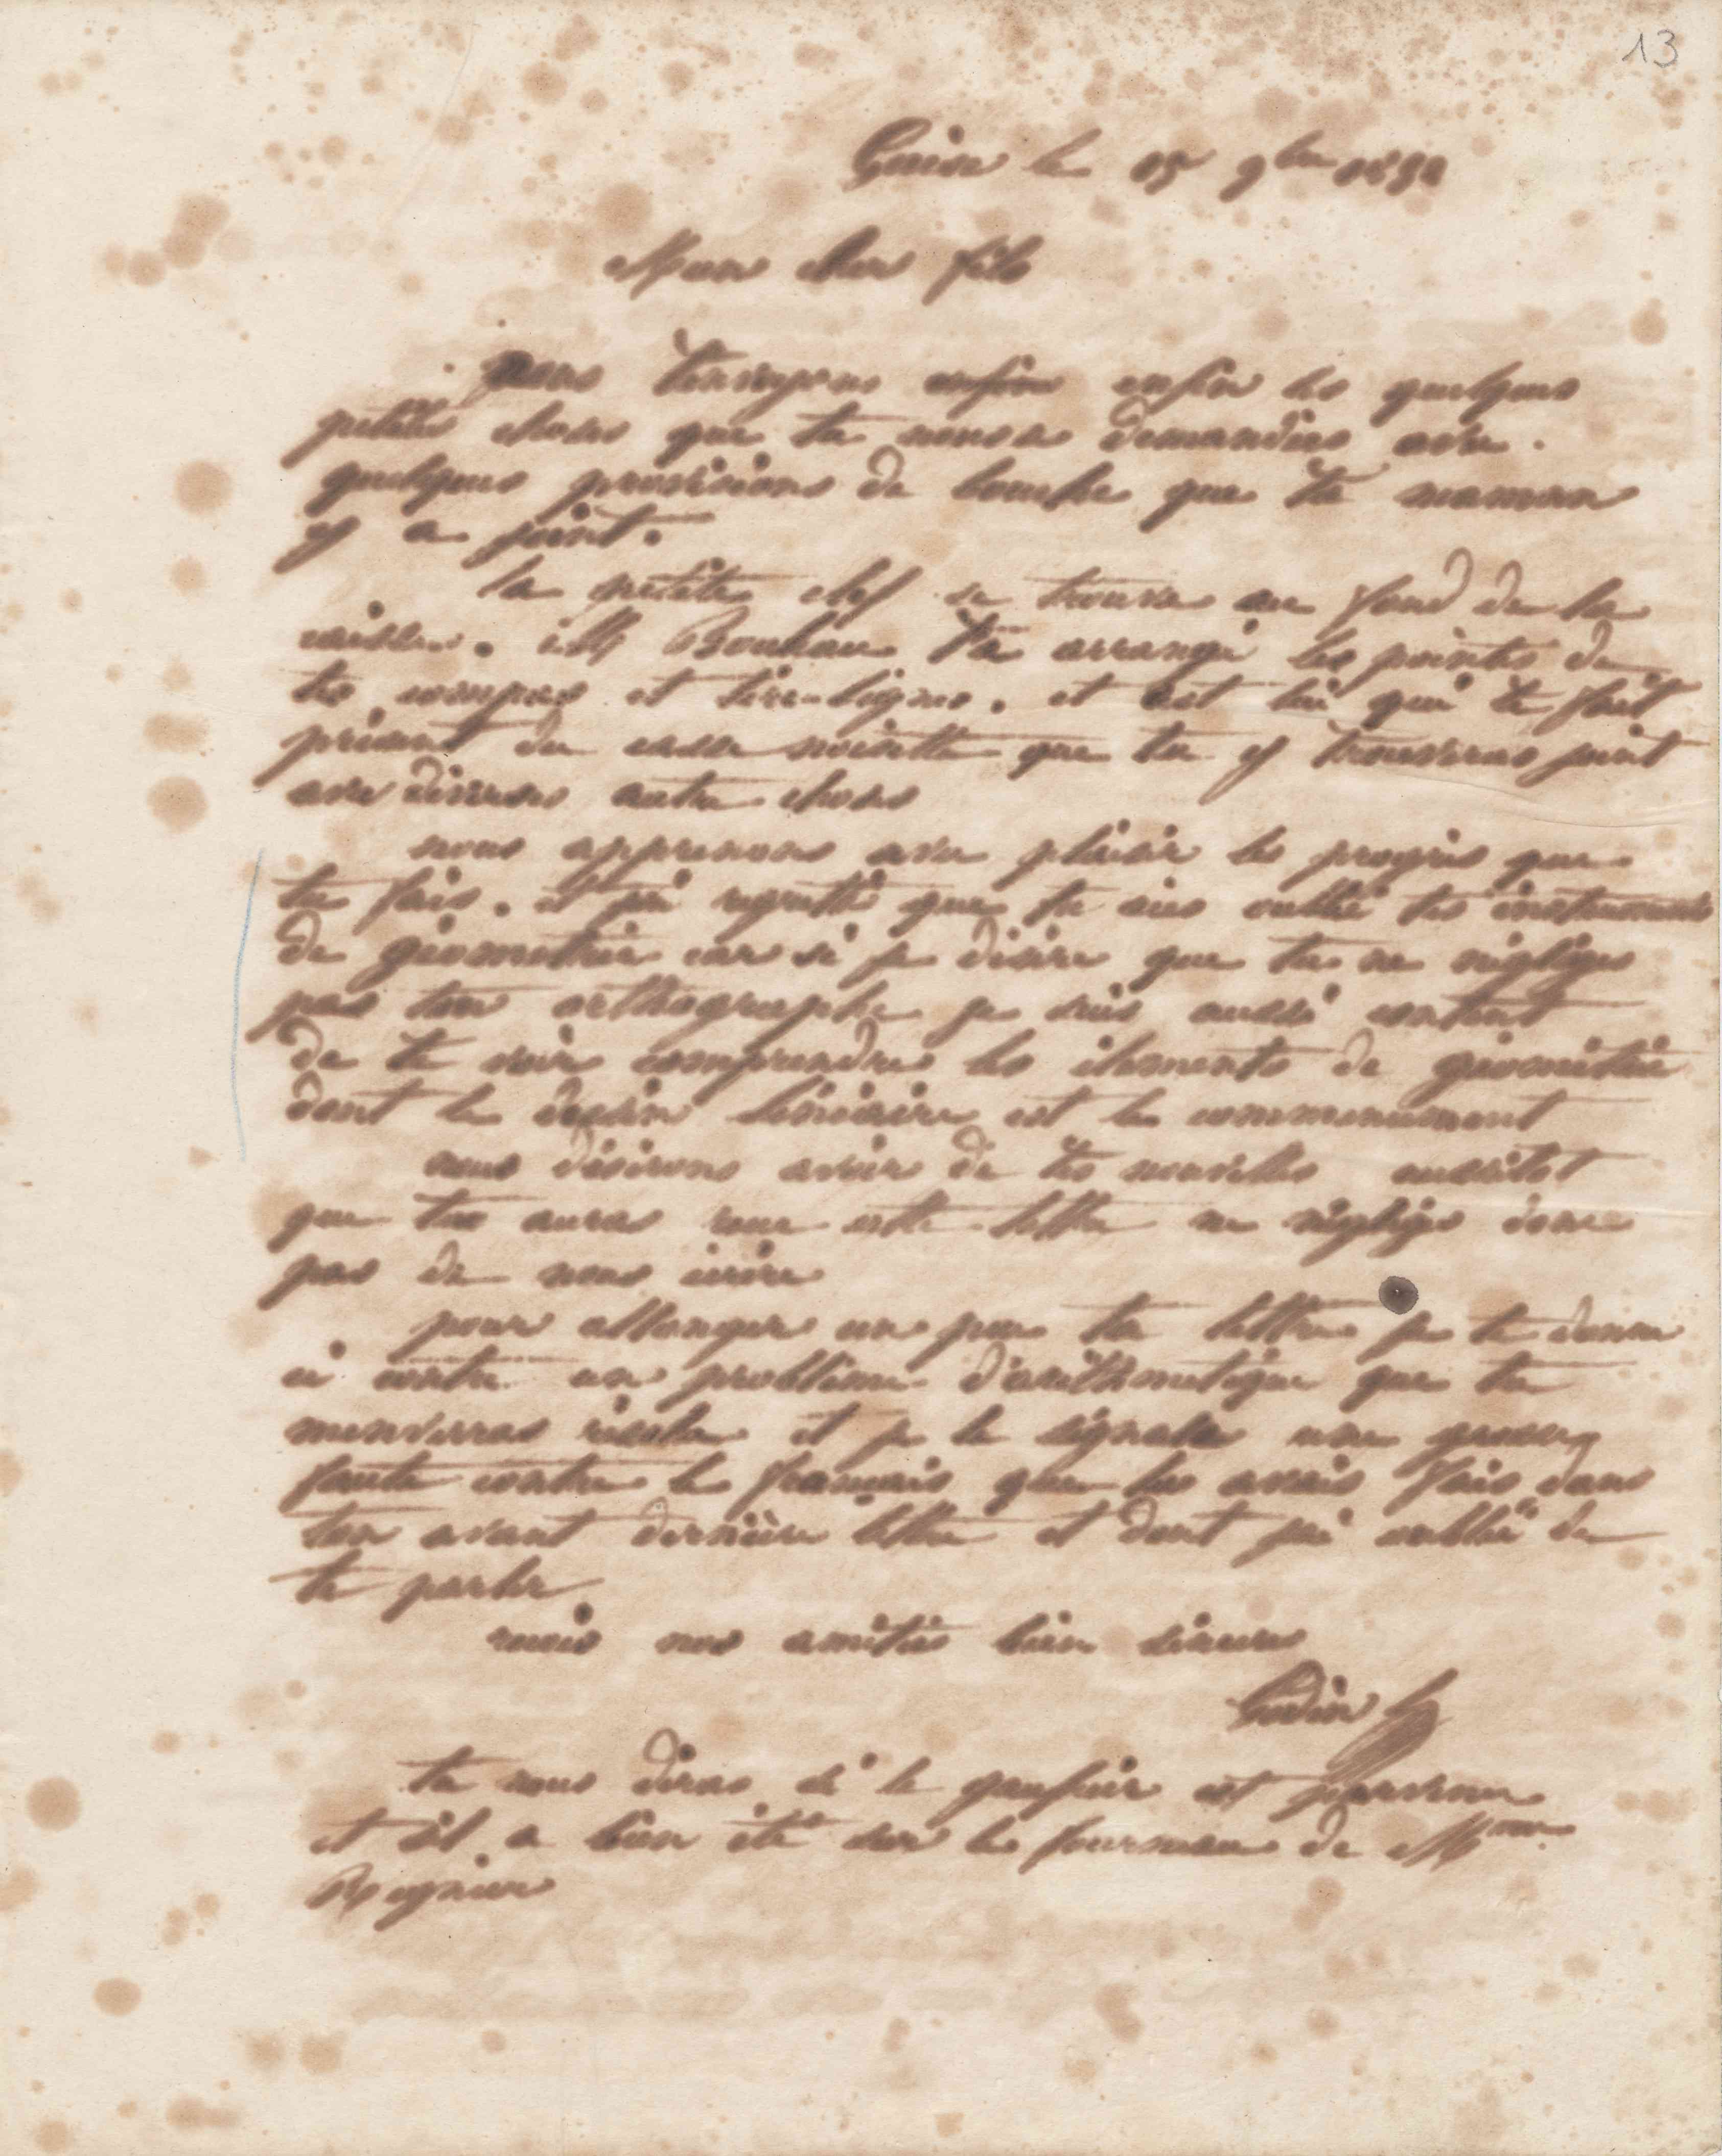 13
Guise le 15 9bre 1851
Mon cher fils
nous t'envoyons enfin enfin les quelques
petites choses que tu nous a demandées avec
quelques provisions de bouche que ta maman
y a joint.
la petite clef se trouve au fond de la
caisse. M t'a arrangé les pointes de
tes compas et tire-lignes. et c'est lui qui te fait
présent du casse noisette que tu y trouveras joint
avec diverses autre choses
nous apprenons avec plaisir les progrès que
tu fais. et j'ai regretté que tu aies oublié tes instruments
de géométrie car si je désire que tu ne négliges
pas ton orthographe je suis aussi content
de te voir comprendre les éléments de géométrie
dont le dessin linéaire est le commencement
nous désirons avoir de tes nouvelles aussitot
que tu auras recu cette lettre ne négliges donc
pas de nous écrire
pour allonger un peu ta lettre je te donne
ci contre un problème d'arithmétique que tu
menverras résolu et je te signale une grosse
faute contre le français que tu avais fais dans
ton avant dernière lettre et dont j'ai oublié de
te parler
recois nos amitiés bien sincères
Godin
tu nous diras si le gaufrier est parvenu
et s'il a bien été sur le fourneau de Mme
Regnier